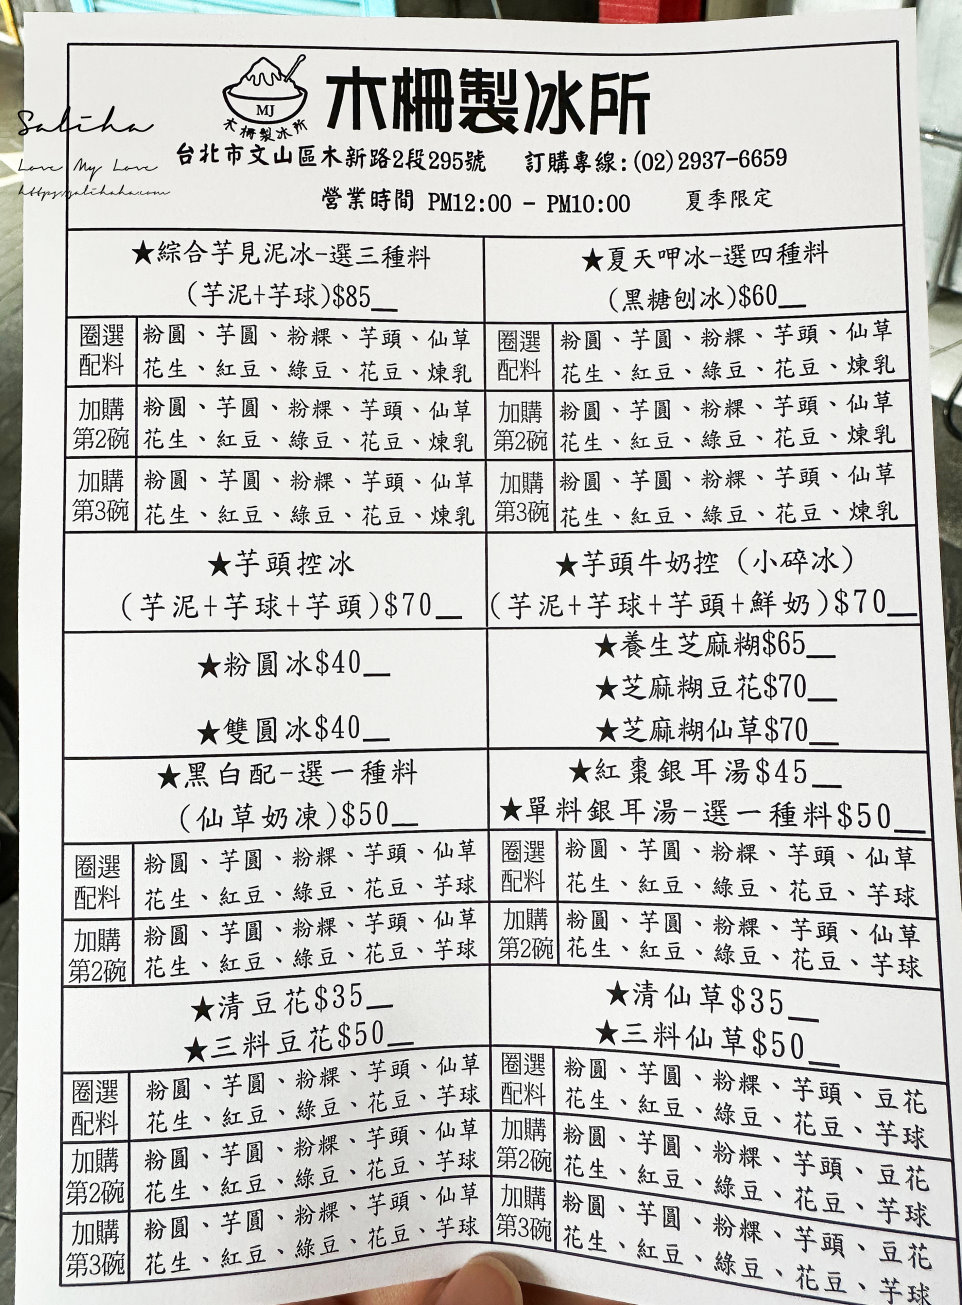 Saliha
Love My Love
https://salihaha.com
MJ
木柵製冰所
木柵製冰所
台北市文山區木新路2段295號 訂購專線:(02)2937-6659
營業時間 PM12:00 - PM10:00 夏季限定
★綜合芋見泥冰-選三種料
(芋泥+芋球)$85__
圈選
配料
粉圓、芋圓、粉粿、芋頭、仙草
花生、紅豆、綠豆、花豆、煉乳
加購
第2碗
粉圓、芋圓、粉粿、芋頭、仙草
花生、紅豆、綠豆、花豆、煉乳
加購
第3碗
粉圓、芋圓、粉粿、芋頭、仙草
花生、紅豆、綠豆、花豆、煉乳
★夏天呷冰-選四種料
(黑糖刨冰)$60__
圈選
配料
粉圓、芋圓、粉粿、芋頭、仙草
花生、紅豆、綠豆、花豆、煉乳
加購
第2碗
粉圓、芋圓、粉粿、芋頭、仙草
花生、紅豆、綠豆、花豆、煉乳
加購
第3碗
粉圓、芋圓、粉粿、芋頭、仙草
花生、紅豆、綠豆、花豆、煉乳
★芋頭控冰
(芋泥+芋球+芋頭)$70__
★芋頭牛奶控(小碎冰)
(芋泥+芋球+芋頭+鮮奶)$70__
★粉圓冰$40__
★雙圓冰$40__
★養生芝麻糊$65__
★芝麻糊豆花$70__
★芝麻糊仙草$70__
★黑白配-選一種料
(仙草奶凍)$50__
圈選
配料
粉圓、芋圓、粉粿、芋頭、仙草
花生、紅豆、綠豆、花豆、芋球
加購
第2碗
粉圓、芋圓、粉粿、芋頭、仙草
花生、紅豆、綠豆、花豆、芋球
★紅棗銀耳湯$45__
★單料銀耳湯-選一種料$50__
圈選
配料
粉圓、芋圓、粉粿、芋頭、仙草
花生、紅豆、綠豆、花豆、芋球
加購
第2碗
粉圓、芋圓、粉粿、芋頭、仙草
花生、紅豆、綠豆、花豆、芋球
★清豆花$35__
★三料豆花$50__
圈選
配料
粉圓、芋圓、粉粿、芋頭、仙草
花生、紅豆、綠豆、花豆、芋球
加購
第2碗
粉圓、芋圓、粉粿、芋頭、仙草
花生、紅豆、綠豆、花豆、芋球
加購
第3碗
粉圓、芋圓、粉粿、芋頭、仙草
花生、紅豆、綠豆、花豆、芋球
★清仙草$35__
★三料仙草$50__
圈選
配料
粉圓、芋圓、粉粿、芋頭、豆花
花生、紅豆、綠豆、花豆、芋球
加購
第2碗
粉圓、芋圓、粉粿、芋頭、豆花
花生、紅豆、綠豆、花豆、芋球
加購
第3碗
粉圓、芋圓、粉粿、芋頭、豆花
花生、紅豆、綠豆、花豆、芋球